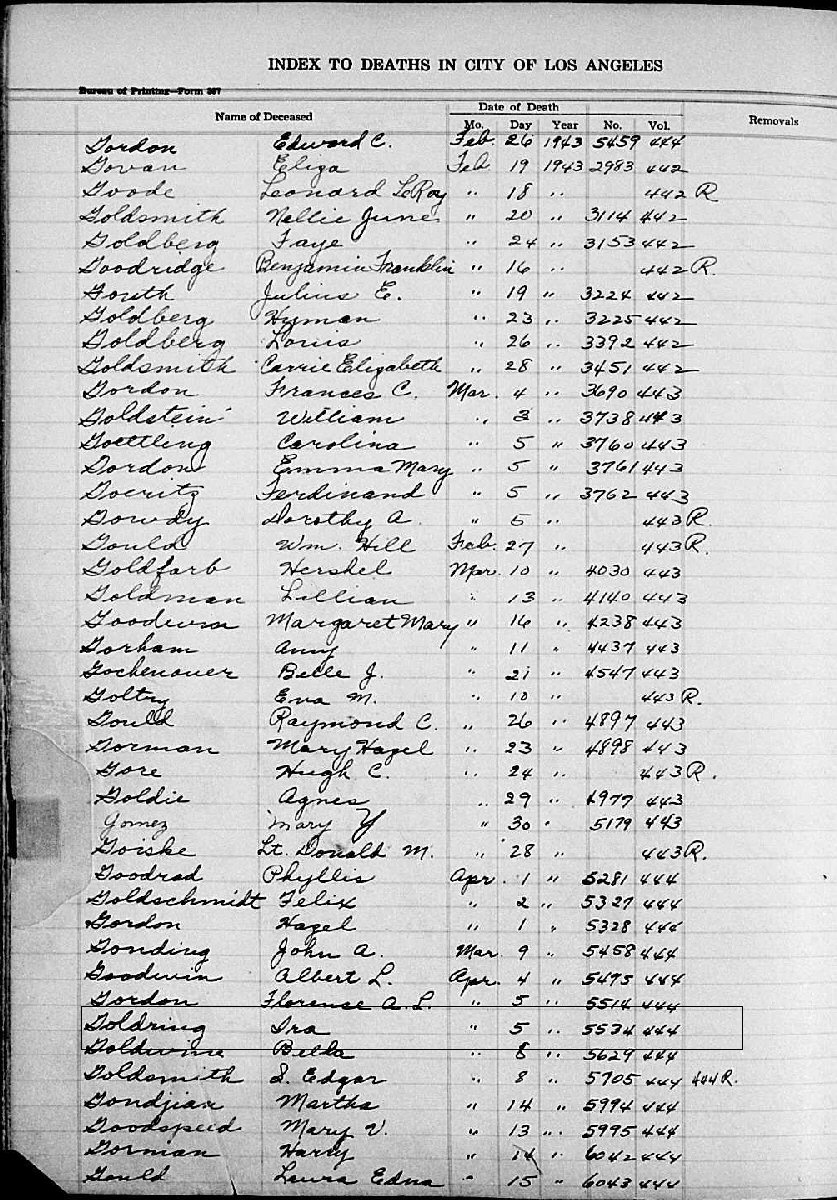 INDEX TO DEATHS IN CITY OF LOS ANGELES
Bureau of Printing—Form 387
Name of Deceased Date of Death Removals
Mo. Day Year No. Vol.
Gordon Edward C. Feb. 26 1943 5459 444
Govan Eliza Feb. 19 1943 2983 442
Goode Leonard LeRoy " 18 " 442 R
Goldsmith Nellie June " 20 " 3114 442
Goldberg Faye " 24 " 3153 442
Goodridge Benjamin Franklin " 16 " 442 R.
Gouth Julius E. " 19 " 3224 442
Goldberg Hyman " 23 " 3225 442
Goldberg Louis " 26 " 3392 442
Goldsmith Carrie Elizabeth " 28 " 3451 442
Gordon Frances C. Mar. 4 " 3690 443
Goldstein William " 3 " 3738 443
Goettling Carolina " 5 " 3760 443
Gordon Emma Mary " 5 " 3761 443
Goeritz Ferdinand " 5 " 3762 443
Gowdy Dorothy A. " 5 " 443 R.
Gould Wm. Hill Feb. 27 " 443 R.
Goldfarb Hershel Mar. 10 " 4030 443
Goldman Lillian " 13 " 4140 443
Goodwin Margaret Mary " 16 " 4238 443
Gorham Amy " 11 " 4437 443
Gochenouer Belle J. " 21 " 4547 443
Goltry Eva M. " 10 " 443 R.
Gould Raymond C. " 26 " 4897 443
Gorman Mary Hazel " 23 " 4898 443
Gore Hugh C. " 24 " 443 R.
Goldie Agnes " 29 " 4977 443
Gomez Mary Y " 30 " 5179 443
Goiske Lt. Donald M. " 28 " 443 R.
Goodrad Phyllis Apr. 1 " 5281 444
Goldschmidt Felix " 2 " 5327 444
Gordon Hazel " 1 " 5328 444
Gonding John A. Mar. 9 " 5458 444
Goodwin Albert L. Apr. 4 " 5495 444
Gordon Florence A. L. " 5 " 5514 444
Goldring Ira " 5 " 5534 444
Goldwine Bella " 8 " 5629 444
Goldsmith S. Edgar " 8 " 5705 444 444 R.
Gondjian Martha " 14 " 5994 444
Goodspeed Mary V. " 13 " 5995 444
Gorman Harry " 14 " 6042 444
Gould Laura Edna " 15 " 6043 444